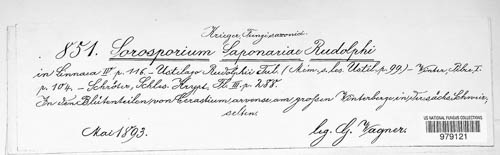 Krieger, Fungi saxonici.
851. Sorosporium Saponariae Rudolphi
in Linnaea IV p. 116. – Ustilago Rudolphii Tul. (Mém. s. les Ustil. p. 99) – Winter, Pilze, I.
p. 104. – Schröter, Schles. Krypt. Fl. III. p. 288.
In den Blütenteilen von Cerastium arvense am großen Winterberge, in der sächs. Schweiz,
selten.
Mai 1893.
leg. G. Wagner.
US NATIONAL FUNGUS COLLECTIONS
979121